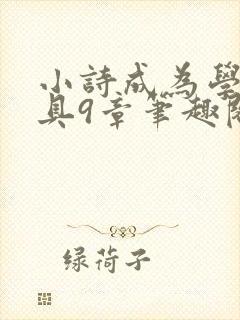 小詩成為學
具9章筆趣
绿荷子